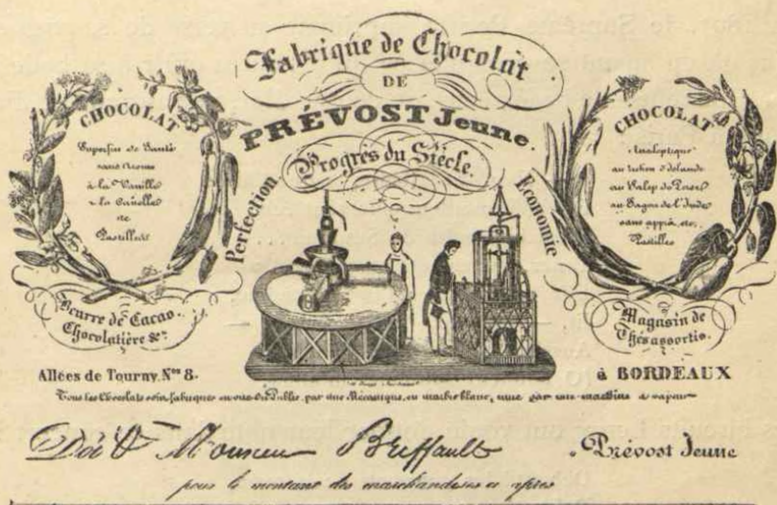 Fabrique de Chocolat
DE
PRÉVOST Jeune.
Progrès du Siècle.
Perfection
Economie
CHOCOLAT
Superfin de Santé
sans Arome
à la Vanille
à la Canelle
etc
Pastilles
Beurre de Cacao.
Chocolatière &c.
CHOCOLAT
Analeptique
au Lichen d'Islande
au Salep de Perse
au Sagou de l'Inde
sans apprêt, etc.
Pastilles
Magasin de
Thés assortis.
Allées de Tourny, Nos 8.
à BORDEAUX
Tous les Chocolats sont fabriqués en vue du Public, par une Mécanique, en marbre blanc, mue par une machine à vapeur
Doit Monsieur Briffault
à Prévost Jeune
pour le montant des marchandises ci après